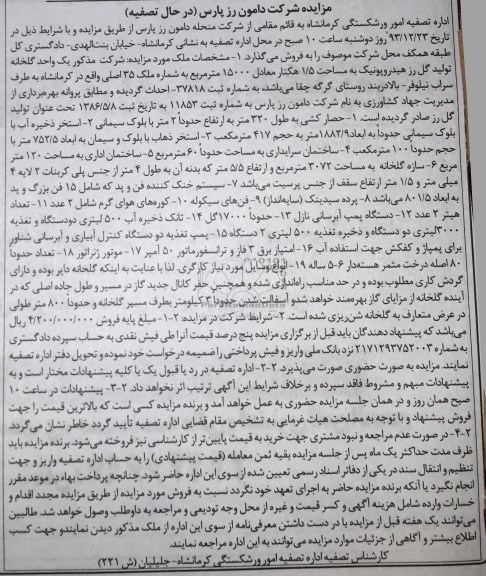 مزایده شرکت دامون رز پارس (در حال تصفیه)
اداره تصفیه امور ورشکستگی کرمانشاه به قائم مقامی از شرکت منحله دامون رز پارس از طریق مزایده و با شرایط ذیل در
تاریخ ۹۳/۱۲/۲۳ روز دوشنبه ساعت ۱۰ صبح در محل اداره تصفیه به نشانی کرمانشاه- خیابان بنت‌الهدی- دادگستری کل
طبقه همکف محل شرکت موصوف را به فروش می‌گذارد. ۱- مشخصات ملک مورد مزایده: شرکت مذکور یک واحد گلخانه
تولید گل رز هیدروپونیک به مساحت ۱/۵ هکتار معادل ۱۵۰۰۰ مترمربع به شماره ملک ۳۵ اصلی واقع در کرمانشاه به طرف
سراب نیلوفر- بالادربند روستای گرگه چقا می‌باشد، به شماره ثبت ۳۷۸۱۸- احداث گردیده و مطابق پروانه بهره‌برداری از
مدیریت جهاد کشاورزی به نام شرکت دامون رز پارس به شماره ثبت ۱۱۸۵۳ به تاریخ ثبت ۱۳۸۶/۵/۸ تحت عنوان تولید
گل رز صادر گردیده است. ۱- حصار کشی به طول ۳۲۰ متر به ارتفاع حدوداً ۲ متر با بلوک سیمانی ۲- استخر ذخیره آب با
بلوک سیمانی حدوداً به ابعاد ۱۸۸۲/۹ متر به حجم ۴۱۷ مترمکعب ۳- استخر ذهاب با بلوک و سیمان به ابعاد ۷۵۲/۵ متر با
حجم حدوداً ۱۰۰ مترمکعب ۴- ساختمان سرایداری به مساحت حدوداً ۶۰ مترمربع ۵- ساختمان اداری به مساحت ۱۲۰ متر
مربع ۶- سازه گلخانه به مساحت ۳۰۷۲ مترمربع و ارتفاع ۵/۵ متر که بدنه آن به طول ۴ متر از جنس پلی کربنات ۲ لایه ۴
میلی متر و ۱/۵ متر ارتفاع سقف از جنس پرسیت می‌باشد ۷- سیستم خنک کننده فن و پد که شامل ۱۵ فن بزرگ و پد
به ابعاد ۸۰۱/۵ می‌باشد ۸- پرده سیدینگ (سایه‌انداز) ۹- فن‌های سیکوله ۱۰- کوره‌های هوای گرم شامل ۲ عدد ۱۱- تعداد
هیتر ۲ عدد ۱۲- دستگاه پمپ آبرسانی نازل ۱۳- حدوداً ۱۷۰۰۰ گل ۱۴- تانک ذخیره آب ۵۰۰ لیتری دو دستگاه و تغذیه
۳۰۰۰ لیتری دو دستگاه و ذخیره تغذیه ۵۰۰ لیتری ۲ دستگاه ۱۵- پمپ تغذیه دو دستگاه کنترل آبیاری و آبرسانی شناور
برای پمپاژ و کفکش جهت استفاده آب ۱۶- امتیاز برق ۳ فاز و ترانسفورماتور ۵۰ آمپر ۱۷- موتور ژنراتور ۱۸- تعداد حدوداً
۸۰ اصله درخت مثمر هسته‌دار ۶-۵ ساله ۱۹- انواع وسایل مورد نیاز کارگری. لذا با عنایت به اینکه گلخانه دایر بوده و دارای
گردش کاری مطلوب بوده و در حد مناسب راه‌اندازی شده و همچنین حفر کانال جدید گاز در مسیر و طول جاده اصلی که در
آینده گلخانه از مزایای گاز بهره‌مند خواهد شد و آسفالت شدن حدود ۳ کیلومتر بطرف مسیر گلخانه و حدوداً ۸۰۰ متر طولی
در عرض متعارف به گلخانه شن‌ریزی شده است. ۲- شرایط شرکت در مزایده: ۱-۲- مبلغ پایه فروش ۴/۲۰۰/۰۰۰/۰۰۰ ریال
می‌باشد که پیشنهاد دهندگان باید قبل از برگزاری مزایده پنج درصد قیمت آنرا طی فیش نقدی به حساب سپرده دادگستری
به شماره ۲۱۷۱۲۹۳۷۵۲۰۰۳ نزد بانک ملی واریز و فیش پرداختی را ضمیمه درخواست خود نموده و تحویل دفتر اداره تصفیه
نمایند. مزایده به صورت حضوری صورت می‌پذیرد. ۲-۲- اداره تصفیه در رد یا قبول یک یا کلیه پیشنهادات مختار است و به
پیشنهادات مبهم و مشروط فاقد سپرده و برخلاف شرایط این آگهی ترتیب اثر نخواهد داد. ۳-۲- پیشنهادات در ساعت ۱۰
صبح همان روز و در همان جلسه مزایده حضوری به عمل خواهد آمد و برنده مزایده کسی است که بالاترین قیمت را جهت
فروش پیشنهاد و با توجه به مصلحت هیات غرمایی به تشخیص مقام قضایی اداره تصفیه تأیید گردد خاطر نشان می‌گردد.
۴-۲- در صورت عدم مراجعه و نبود مشتری جهت خرید به قیمت پایین‌تر از کارشناسی نیز فروخته می‌شود. برنده مزایده باید
ظرف مدت حداکثر یک ماه پس از جلسه مزایده بقیه ثمن معامله (قیمت پیشنهادی) را به حساب اداره تصفیه واریز و جهت
تنظیم و انتقال سند در یکی از دفاتر اسناد رسمی تعیین شده از سوی این اداره حاضر شود. چنانچه پرداخت بهاء در موعد مقرر
انجام نگیرد یا آنکه برنده مزایده حاضر به اجرای تعهد خود نگردد نسبت به فروش مورد مزایده از طریق مزایده مجدد اقدام و
خسارات وارده شامل هزینه آگهی و کسر قیمت و غیره از محل وجه تودیعی و مراجعه به داوطلب وصول خواهد شد. طالبین
می‌توانند یک هفته قبل از مزایده با در دست داشتن معرفی‌نامه از سوی این اداره از ملک مذکور دیدن نمایند و جهت کسب
اطلاع بیشتر و آگاهی از جزئیات موارد مزایده می‌توانند به این اداره مراجعه نمایند.
کارشناس تصفیه اداره تصفیه امور ورشکستگی کرمانشاه- جلیلیان (ش ۲۲۱)